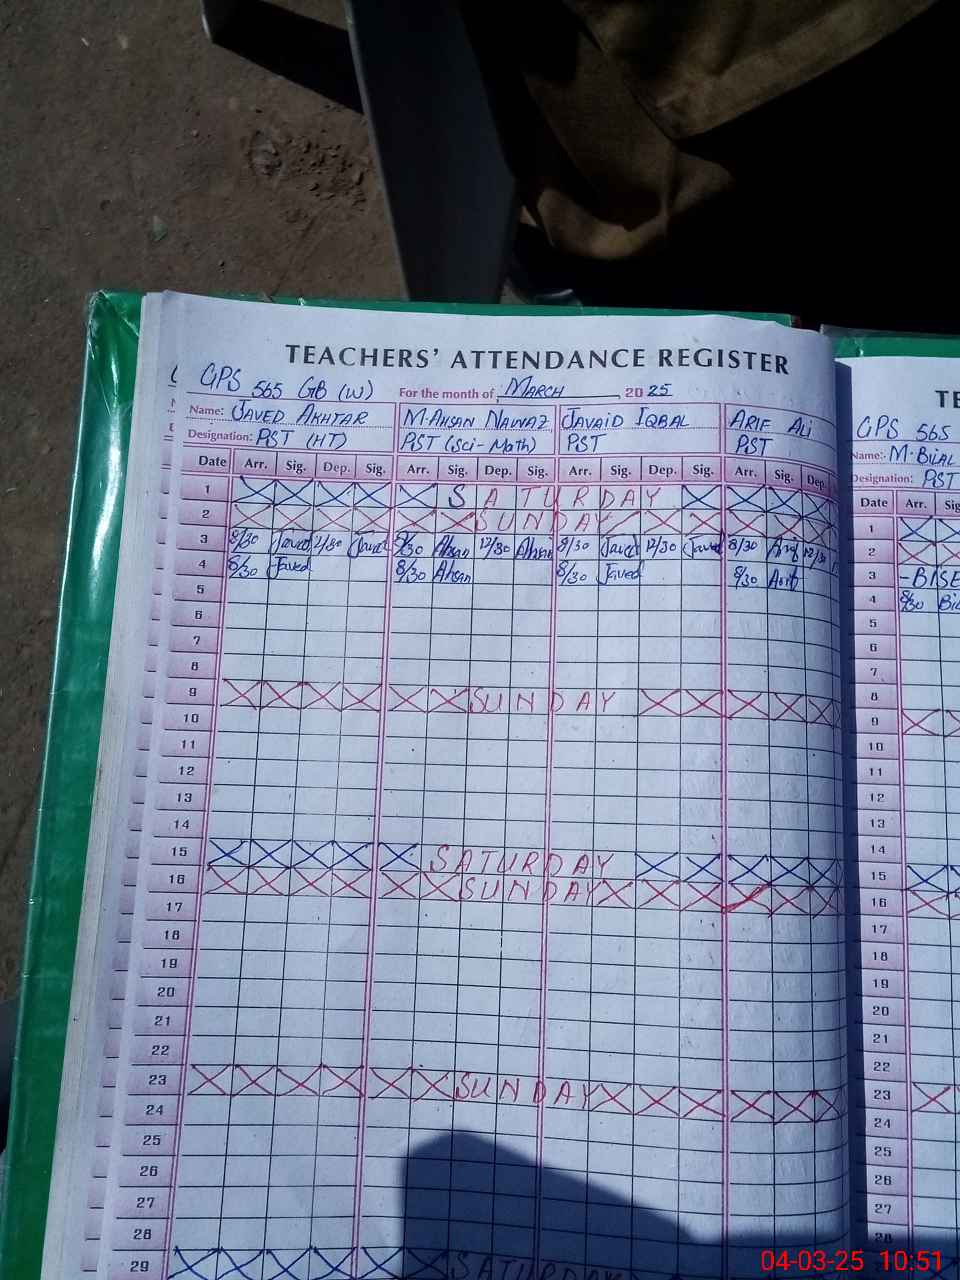 TEACHERS' ATTENDANCE REGISTER
GPS 565 GB (W) For the month of MARCH 2025
Name: JAVED AKHTAR M. AHSAN NAWAZ JAVAID IQBAL ARIF ALi
Designation: PST (HT) PST (Sci-Math) PST PST
Date Arr. Sig. Dep. Sig. Arr. Sig. Dep. Sig. Arr. Sig. Dep. Sig. Arr. Sig. Dep.
1 SATURDAY
2 SUNDAY
3 8/30 Javed Javed 8/30 Ahsan 12/30 Ahsan 8/30 Javed 12/30 Javed 8/30 Arif 12/30
4 8/30 Javed 8/30 Ahsan 8/30 Javed 8/30 Arif
5
6
7
8
9 SUNDAY
10
11
12
13
14
15 SATURDAY
16 SUNDAY
17
18
19
20
21
22
23 SUNDAY
24
25
26
27
28
29 SATURDAY
TE
GPS 565
Name: M. BILAL
Designation: PST
Date Arr. Sig
1
2
3 -BISE
4 8/30 Bil
5
6
7
8
9
10
11
12
13
14
15
16
17
18
19
20
21
22
23
24
25
26
27
28
04-03-25 10:51